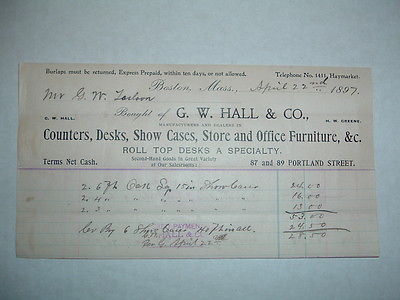 Burlaps must be returned, Express Prepaid, within ten days, or not allowed.
Telephone No. 1411, Haymarket.
Boston, Mass., April 22nd 1897.
Mr G. W.
Bought of G. W. HALL & CO.,
G. W. HALL.
H. W. GREENE.
MANUFACTURERS AND DEALERS IN
Counters, Desks, Show Cases, Store and Office Furniture, &c.
ROLL TOP DESKS A SPECIALTY.
Second-Hand Goods in Great Variety
at Our Salesrooms:
Terms Net Cash.
87 and 89 PORTLAND STREET.
2 6 ft Oak Sq 15 in Show Cases 24.00
2 4 " " " 16.00
2 3 " " " 13 00
53.00
Cr By 6 Show Cases 24 50
28.50
PAYMENT
HALL & CO.
April 22